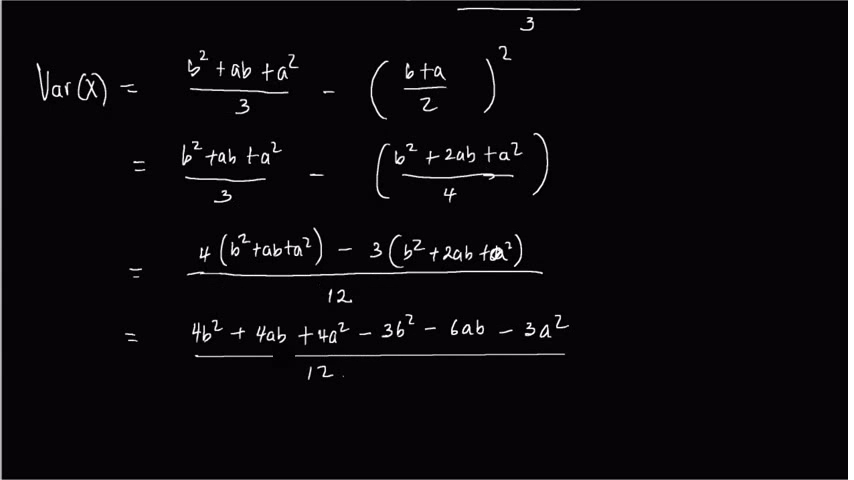 3
Var(X) = (b² + ab + a²)/3 - ((b+a)/2)²
= (b² + ab + a²)/3 - ((b² + 2ab + a²)/4)
= (4(b² + ab + a²) - 3(b² + 2ab + a²))/12
= (4b² + 4ab + 4a² - 3b² - 6ab - 3a²)/12